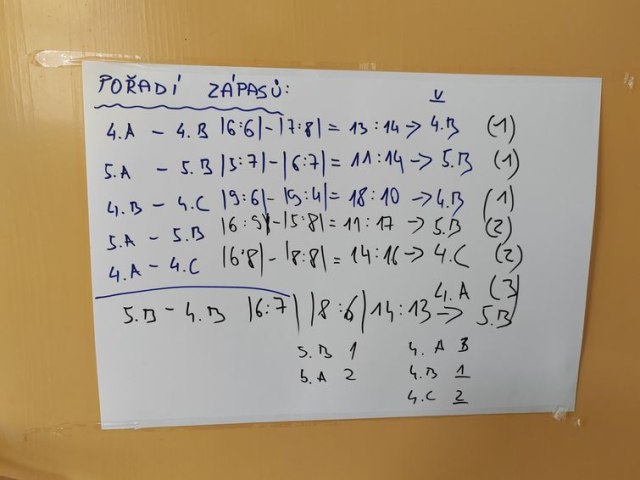 POŘADÍ ZÁPASŮ:
V
4.A - 4.B |6:6|-|7:8| = 13:14 → 4.B (1)
5.A - 5.B |5:7|-|6:7| = 11:14 → 5.B (1)
4.B - 4.C |9:6|-|9:4| = 18:10 → 4.B (1)
5.A - 5.B |6:9|-|5:8| = 11:17 → 5.B (2)
4.A - 4.C |6:8|-|8:8| = 14:16 → 4.C (2)
4.A (3)
5.B - 4.B |6:7| |8:6| 14:13 → 5.B
5.B 1 4. A 3
5.A 2 4.B 1
4.C 2